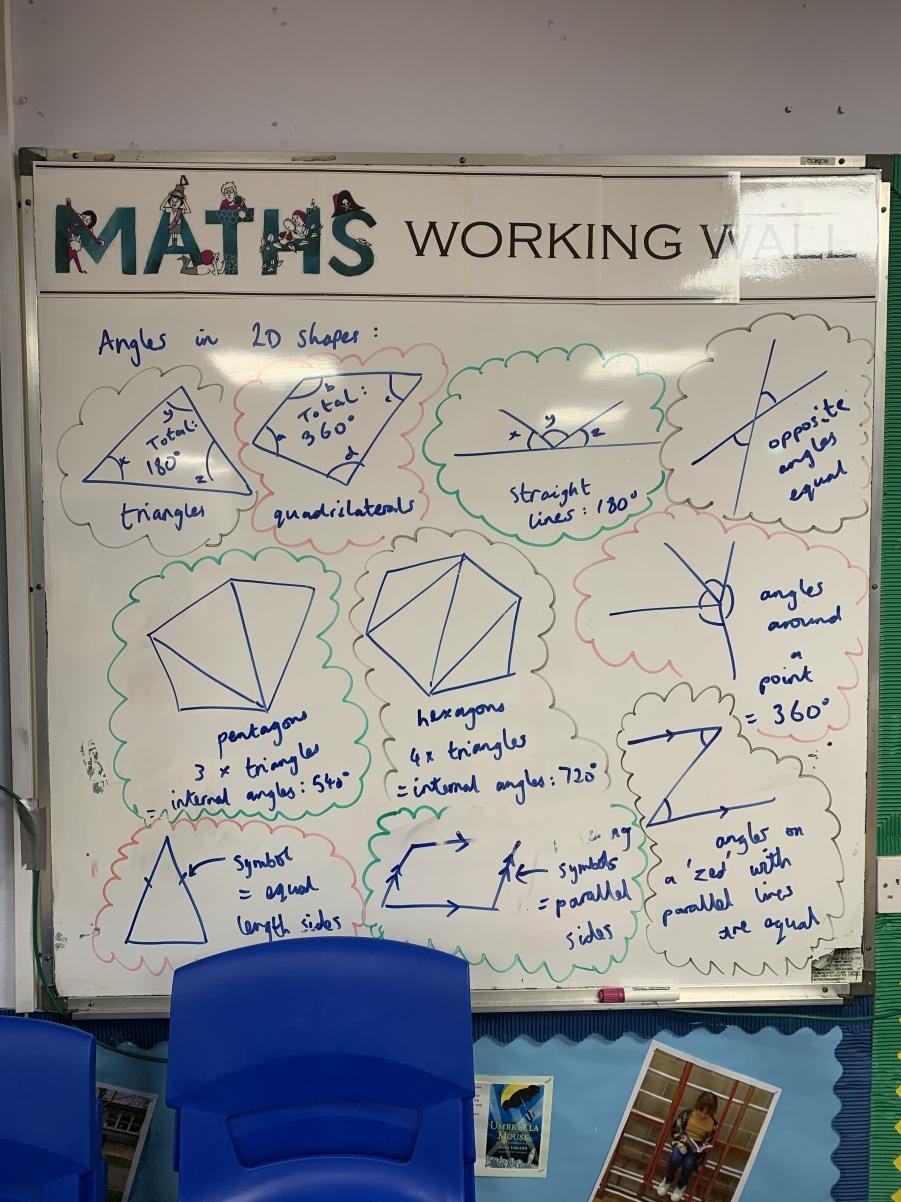 MATHS WORKING WALL
Angles in 2D shapes:
y
Total:
x
180°
z
triangles
b
Total:
c
360°
a
d
quadrilaterals
x y z
straight
lines: 180°
opposite
angles
equal
pentagons
3 x triangles
= internal angles: 540°
hexagons
4x triangles
= internal angles: 720°
angles
around
a
point
= 360°
symbol
= equal
length sides
ng
symbols
= parallel
sides
angles on
a 'zed' with
parallel lines
are equal
UMBRELLA
MOUSE